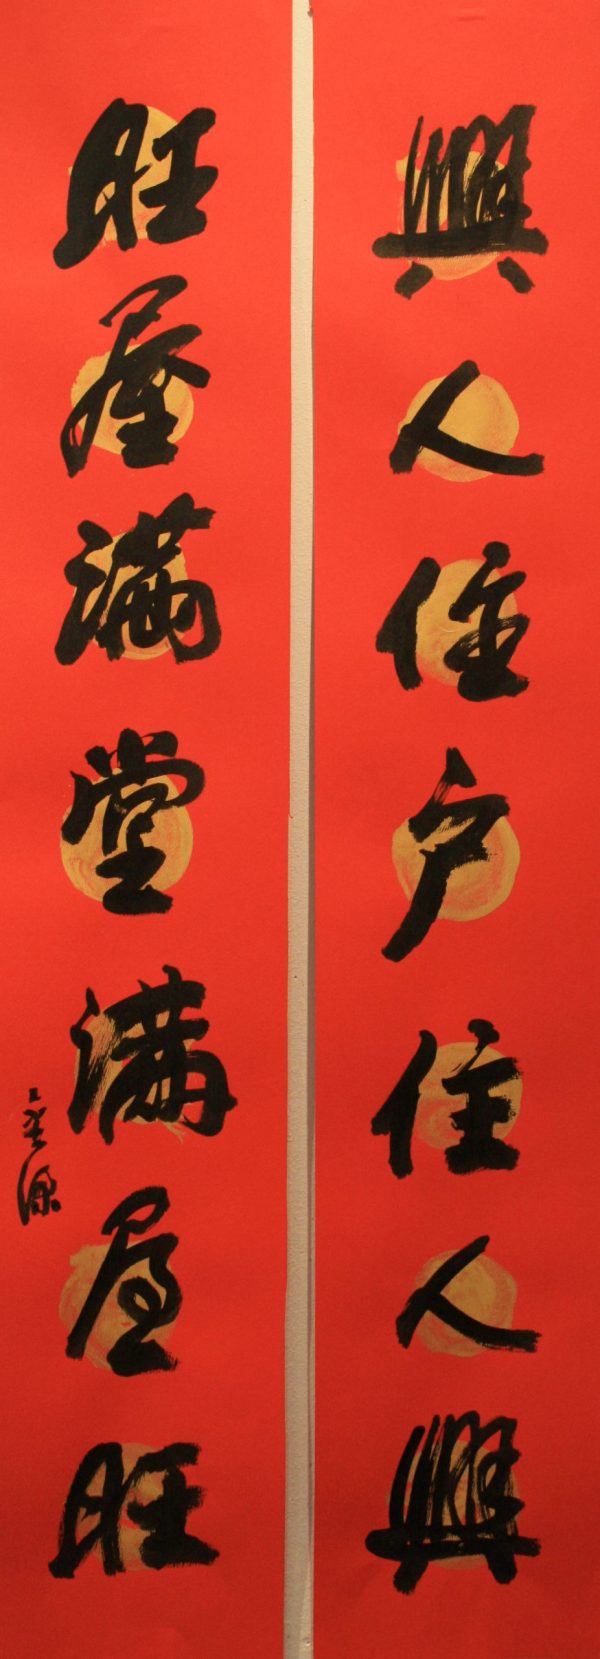 興人住户住人興
旺屋滿堂滿屋旺